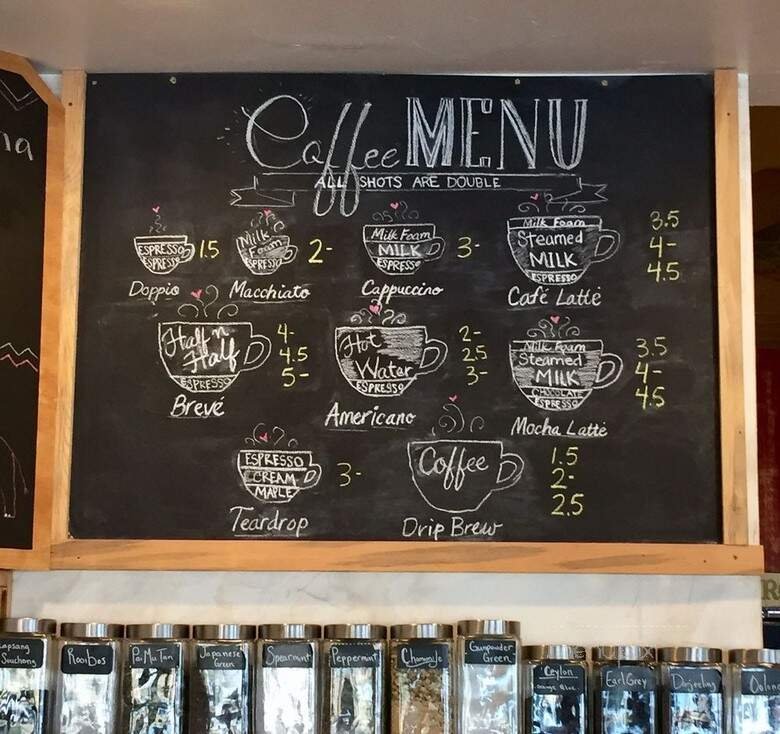 Coffee MENU
ALL SHOTS ARE DOUBLE
ESPRESSO
ESPRESSO
1.5
Doppio
Milk
Foam
ESPRESSO
2-
Macchiato
Milk Foam
MILK
ESPRESSO
3-
Cappuccino
Milk Foam
Steamed
MILK
ESPRESSO
3.5
4-
4.5
Café Latté
Half n
Half
ESPRESSO
4-
4.5
5-
Brevé
Hot
Water
ESPRESSO
2-
2.5
3-
Americano
Milk Foam
Steamed
MILK
CHOCOLATE
ESPRESSO
3.5
4-
4.5
Mocha Latté
ESPRESSO
CREAM
MAPLE
3-
Teardrop
Coffee
1.5
2-
2.5
Drip Brew
Lapsang
Souchong
Rooibos
Pai Mu Tan
Japanese
Green
Spearmint
Peppermint
Chamomile
Gunpowder
Green
Ceylon
Earl Grey
Darjeeling
Oolong